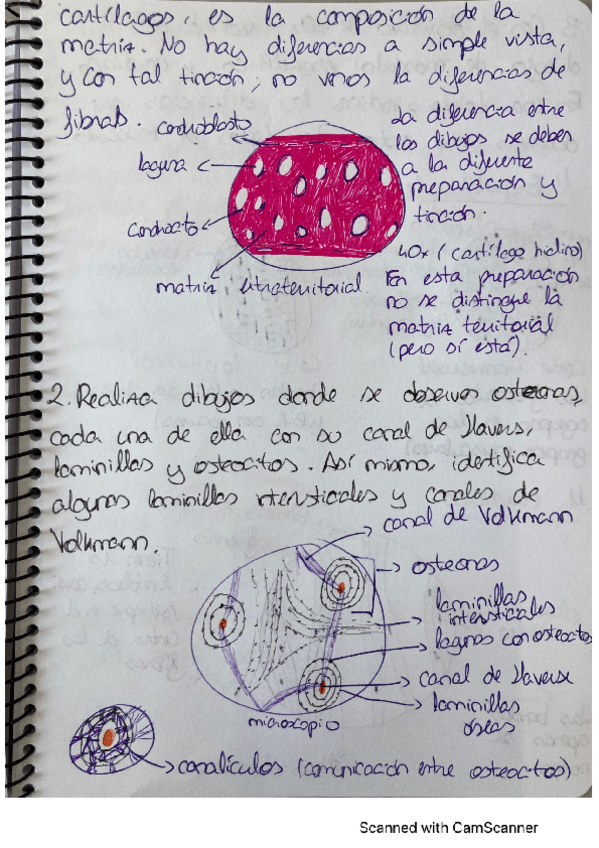 cartílagos, es la composición de la
matriz. No hay diferencias a simple vista,
y con tal tinción, no vemos la diferencias de
fibras.
condroblasto
laguna
condrocito
matriz extraterritorial.
La diferencia entre
los dibujos se debes
a la diferente
preparación y
tinción.
40x (cartílago hialino)
En esta preparación
no se distingue la
matriz territorial
(pero sí está).
2. Realiza dibujos donde se observen osteonas,
cada una de ella con su canal de Havers,
laminillas y osteocitos. Así mismo, identifica
algunas laminillas intersticiales y canales de
Volkmann.
canal de Volkmann
osteonas
laminillas
intersticiales
lagunas con osteocitos
canal de Havers
laminillas
óseas
microscopio
canalículos (comunicación entre osteocitos)
Scanned with CamScanner